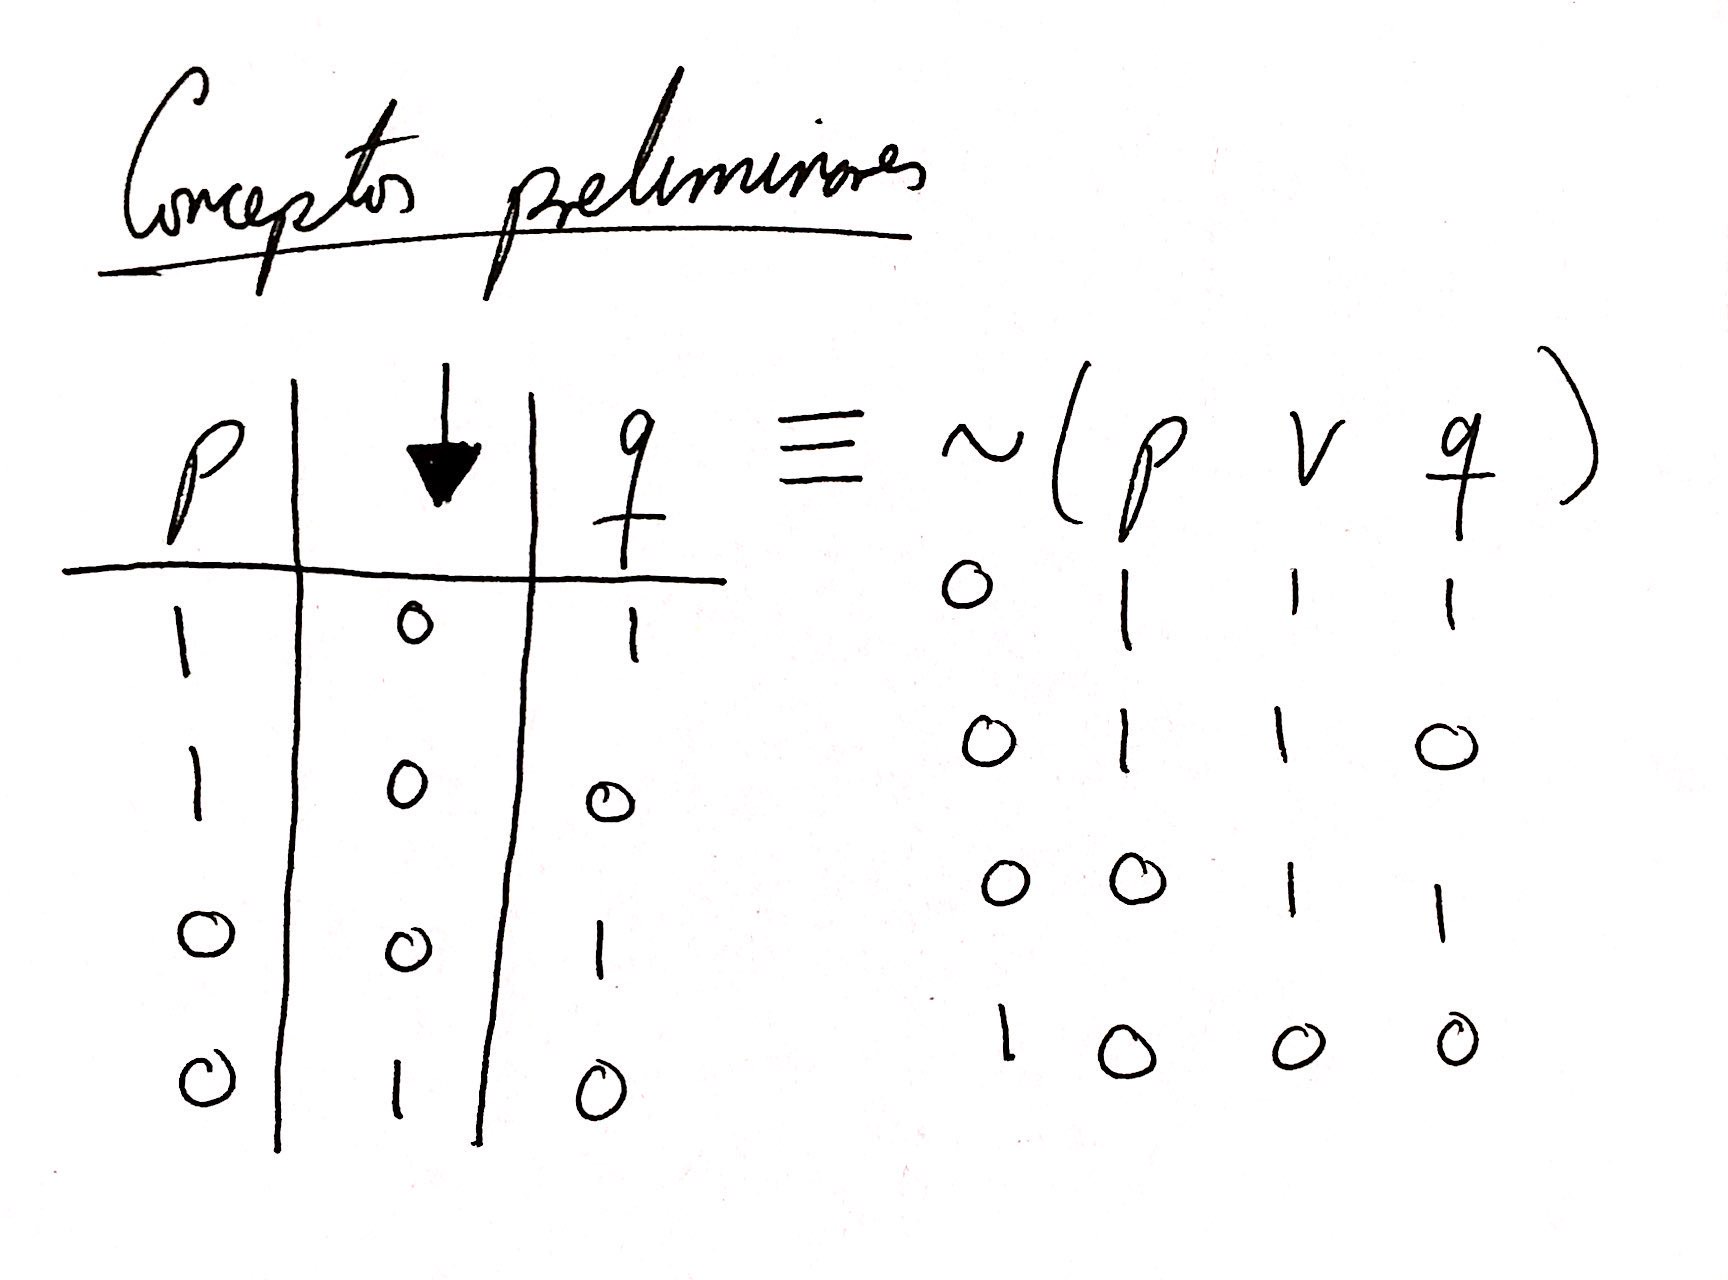 Conceptos preliminares
p ↓ q ≡ ~ ( p v q )
1 0 1 0 1 1 1
1 0 0 0 1 1 0
0 0 1 0 0 1 1
0 1 0 1 0 0 0